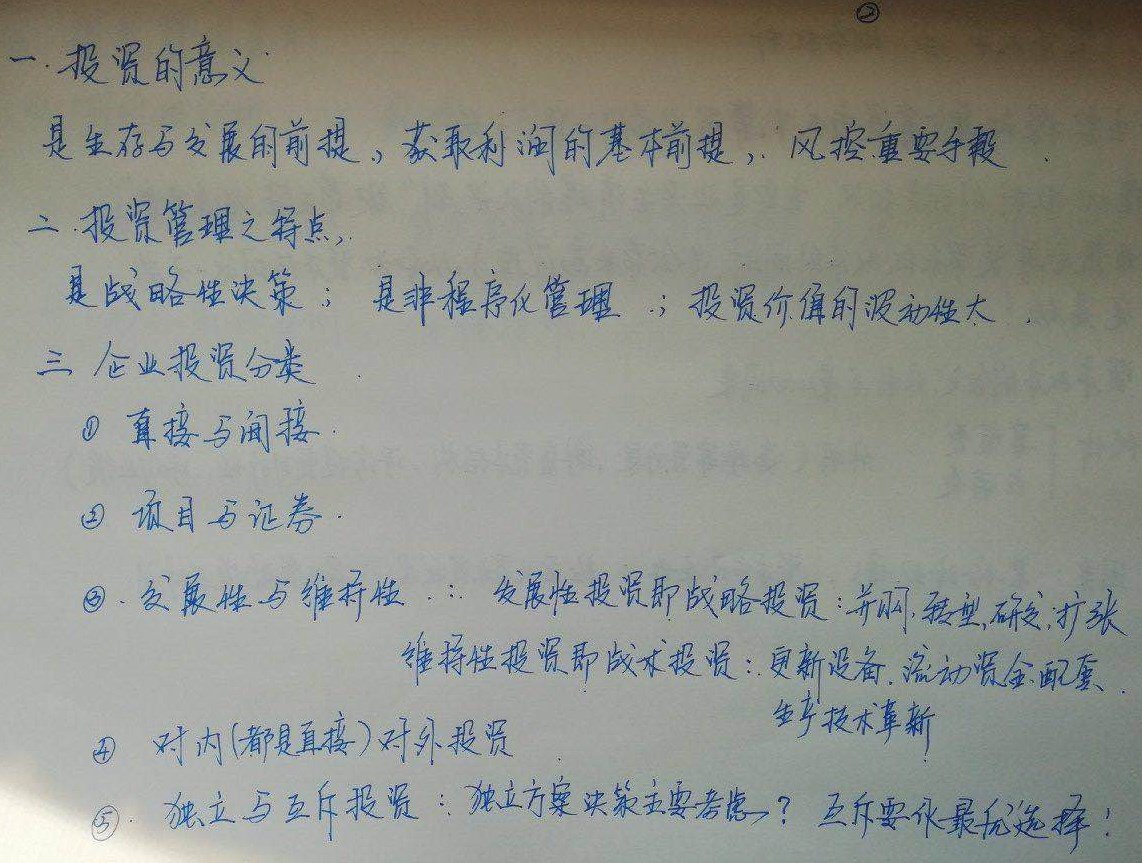 ②
一.投资的意义.
是生存与发展的前提,获取利润的基本前提,.风控重要手段.
二.投资管理之特点,.
是战略性决策;是非程序化管理.;投资价值的波动性大.
三 企业投资分类.
① 直接与间接.
② 项目与证券.
③.发展性与维持性.:发展性投资即战略投资:并购,转型,研发,扩张
维持性投资即战术投资:更新设备.流动资金配套.
生产技术革新
④ 对内(都是直接)对外投资
⑤.独立与互斥投资:独立方案决策主要考虑?互斥要做最优选择!